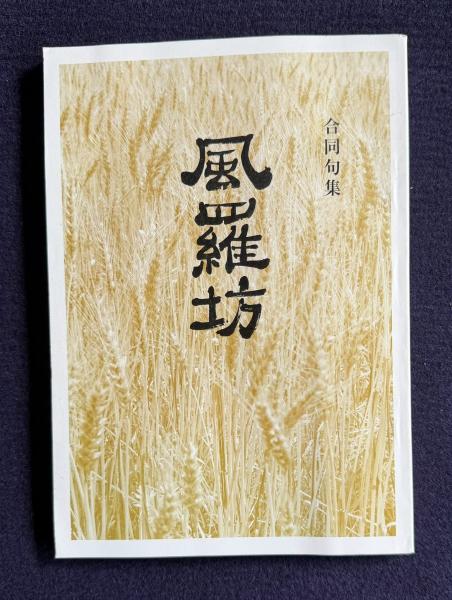 合同句集
風羅坊